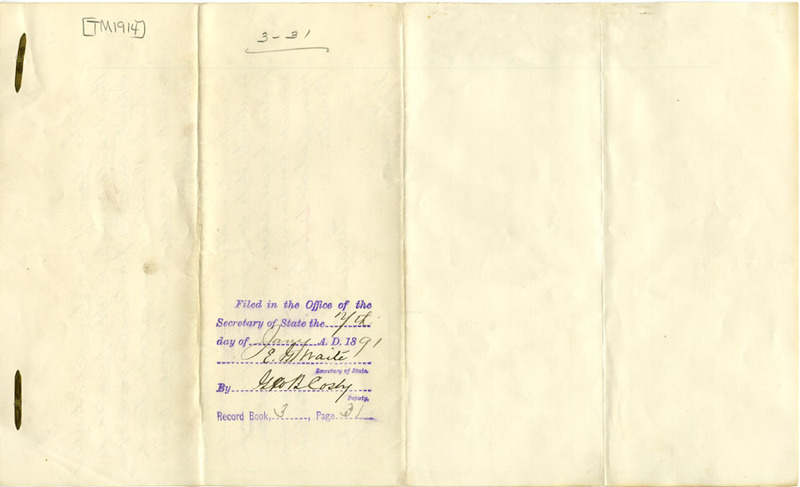 [TM1914]
3-31
Filed in the Office of the
Secretary of State the
day of Jany A. D. 1891
E. G. Waite
Secretary of State.
By Geo B Cosby
Deputy.
Record Book, 3, Page 31